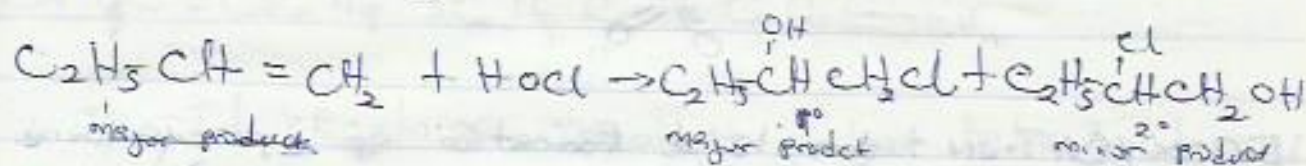 OH Cl
C₂H₅CH = CH₂ + HOCl → C₂H₅CHCH₂Cl + C₂H₅CHCH₂OH
major product major product 1° minor product 2°